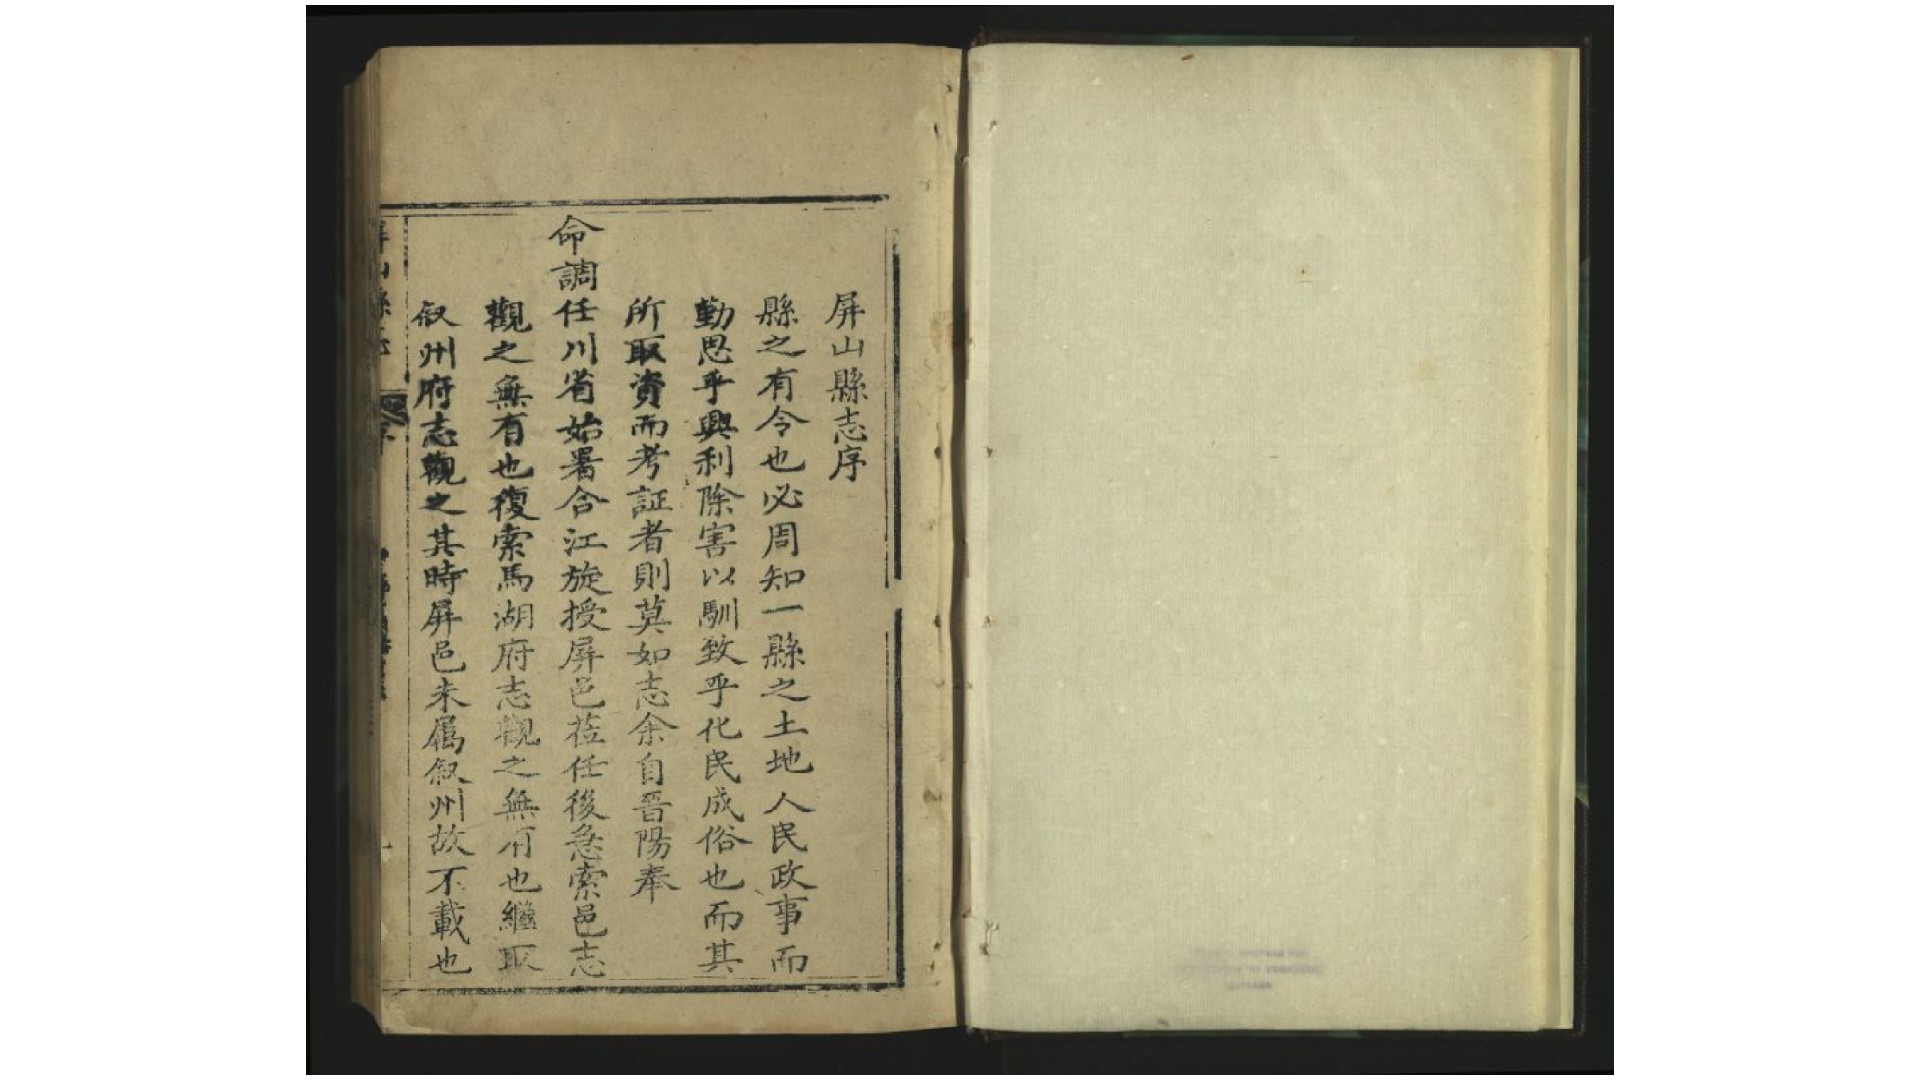 屏山縣志序
縣之有令也必周知一縣之土地人民政事而
勤思乎興利除害以馴致乎化民成俗也而其
所取資而考証者則莫如志余自晉陽奉
命調任川省始署合江旋授屏邑蒞任後急索邑志
觀之無有也復索馬湖府志觀之無有也繼取
叙州府志觀之其時屏邑未屬叙州故不載也
屏山縣志